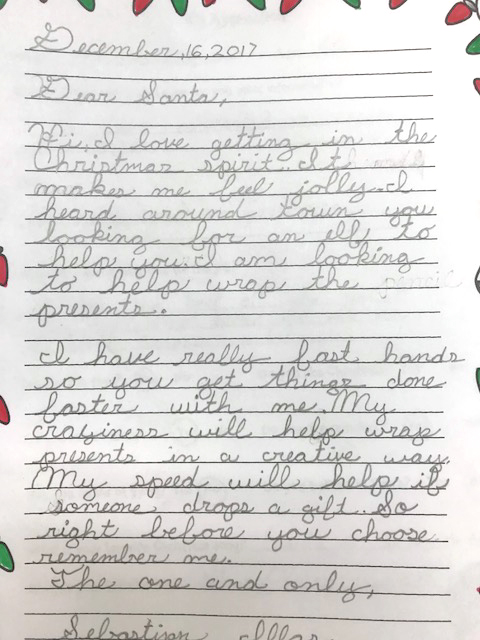 December,16,2017
Dear Santa,
Hi, I love getting in the
Christmas spirit. It
makes me feel jolly. I
heard around town you
looking for an elf to
help you. I am looking
to help wrap the
presents.
I have really fast hands
so you get things done
faster with me. My
crayiness will help wrap
presents in a creative way.
My speed will help if
someone drops a gift. So
right before you choose
remember me.
The one and only,
Sebastian